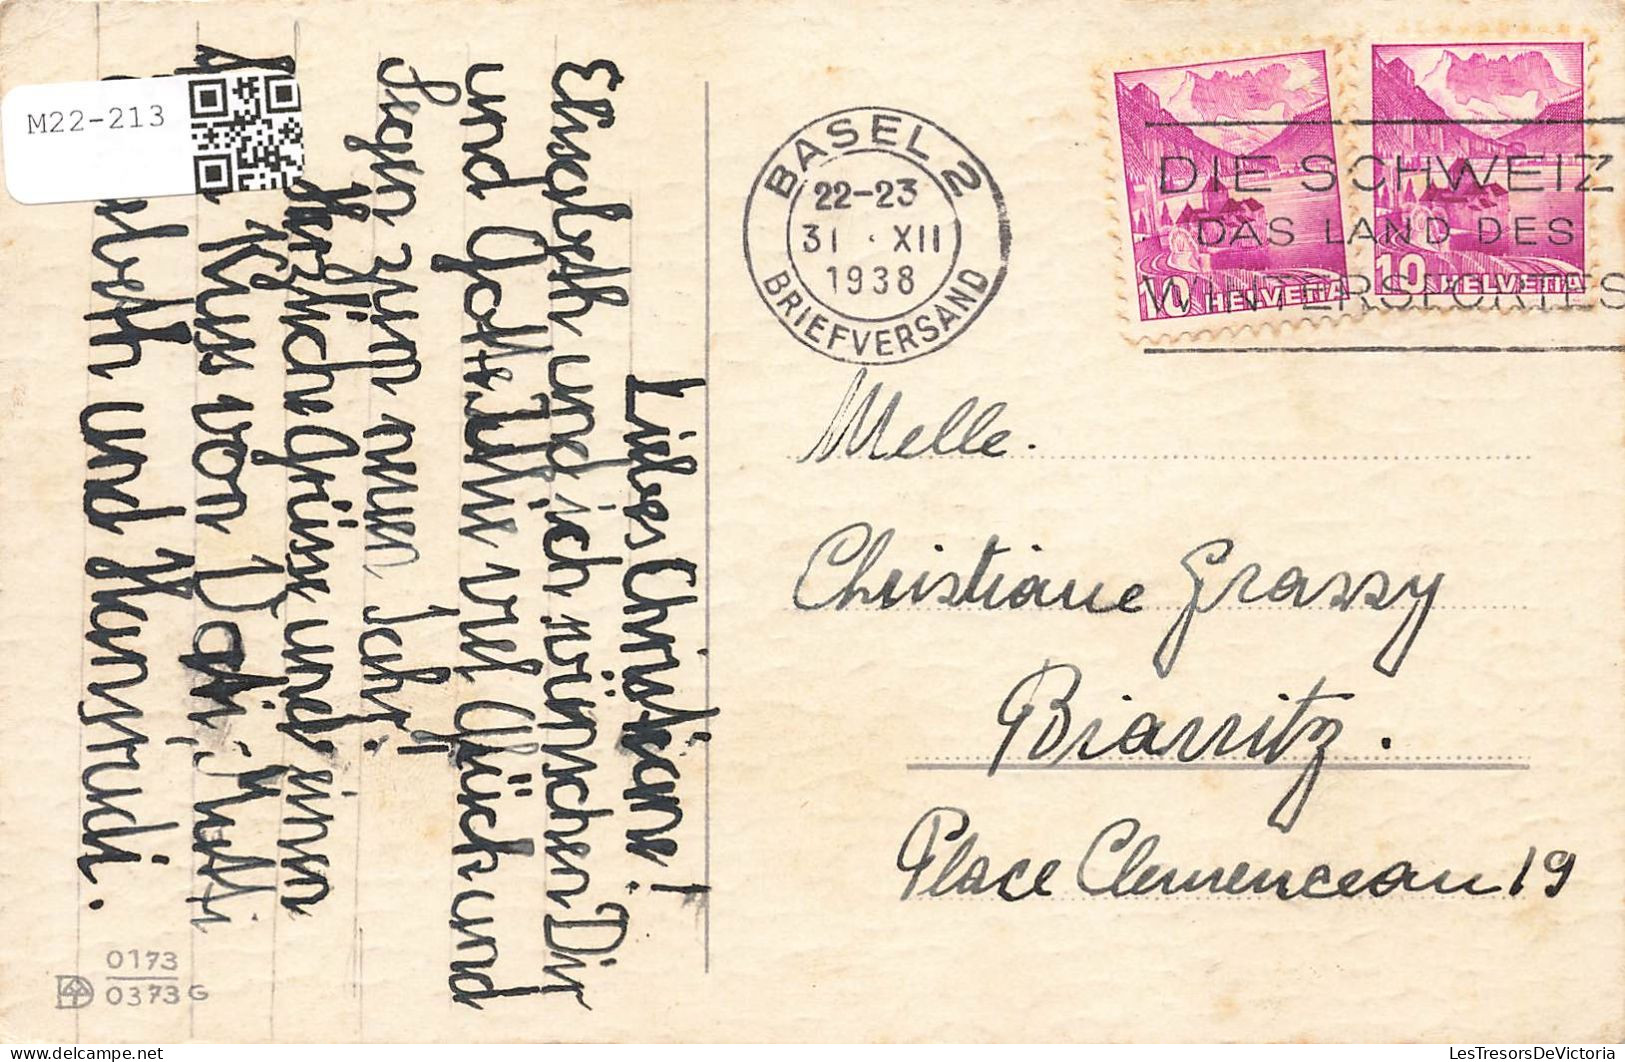 M22-213
BASEL 2
22-23
31. XII
1938
BRIEFVERSAND
DIE SCHWEIZ
DAS LAND DES
WINTERSPORTES
10 HELVETIA
10 HELVETIA
Liebes Christiane!
Elisabeth und ich wünschen Dir
und Gottwilli viel Glück und
Segen zum neuen Jahr!
Herzliche Grüsse und einen
Kuss von Dati, Mutti
und Hansrudi.
Melle.
Christiane Grassy
Biarritz.
Place Clemenceau 19
0173
0373 G
LesTresorsDeVictoria